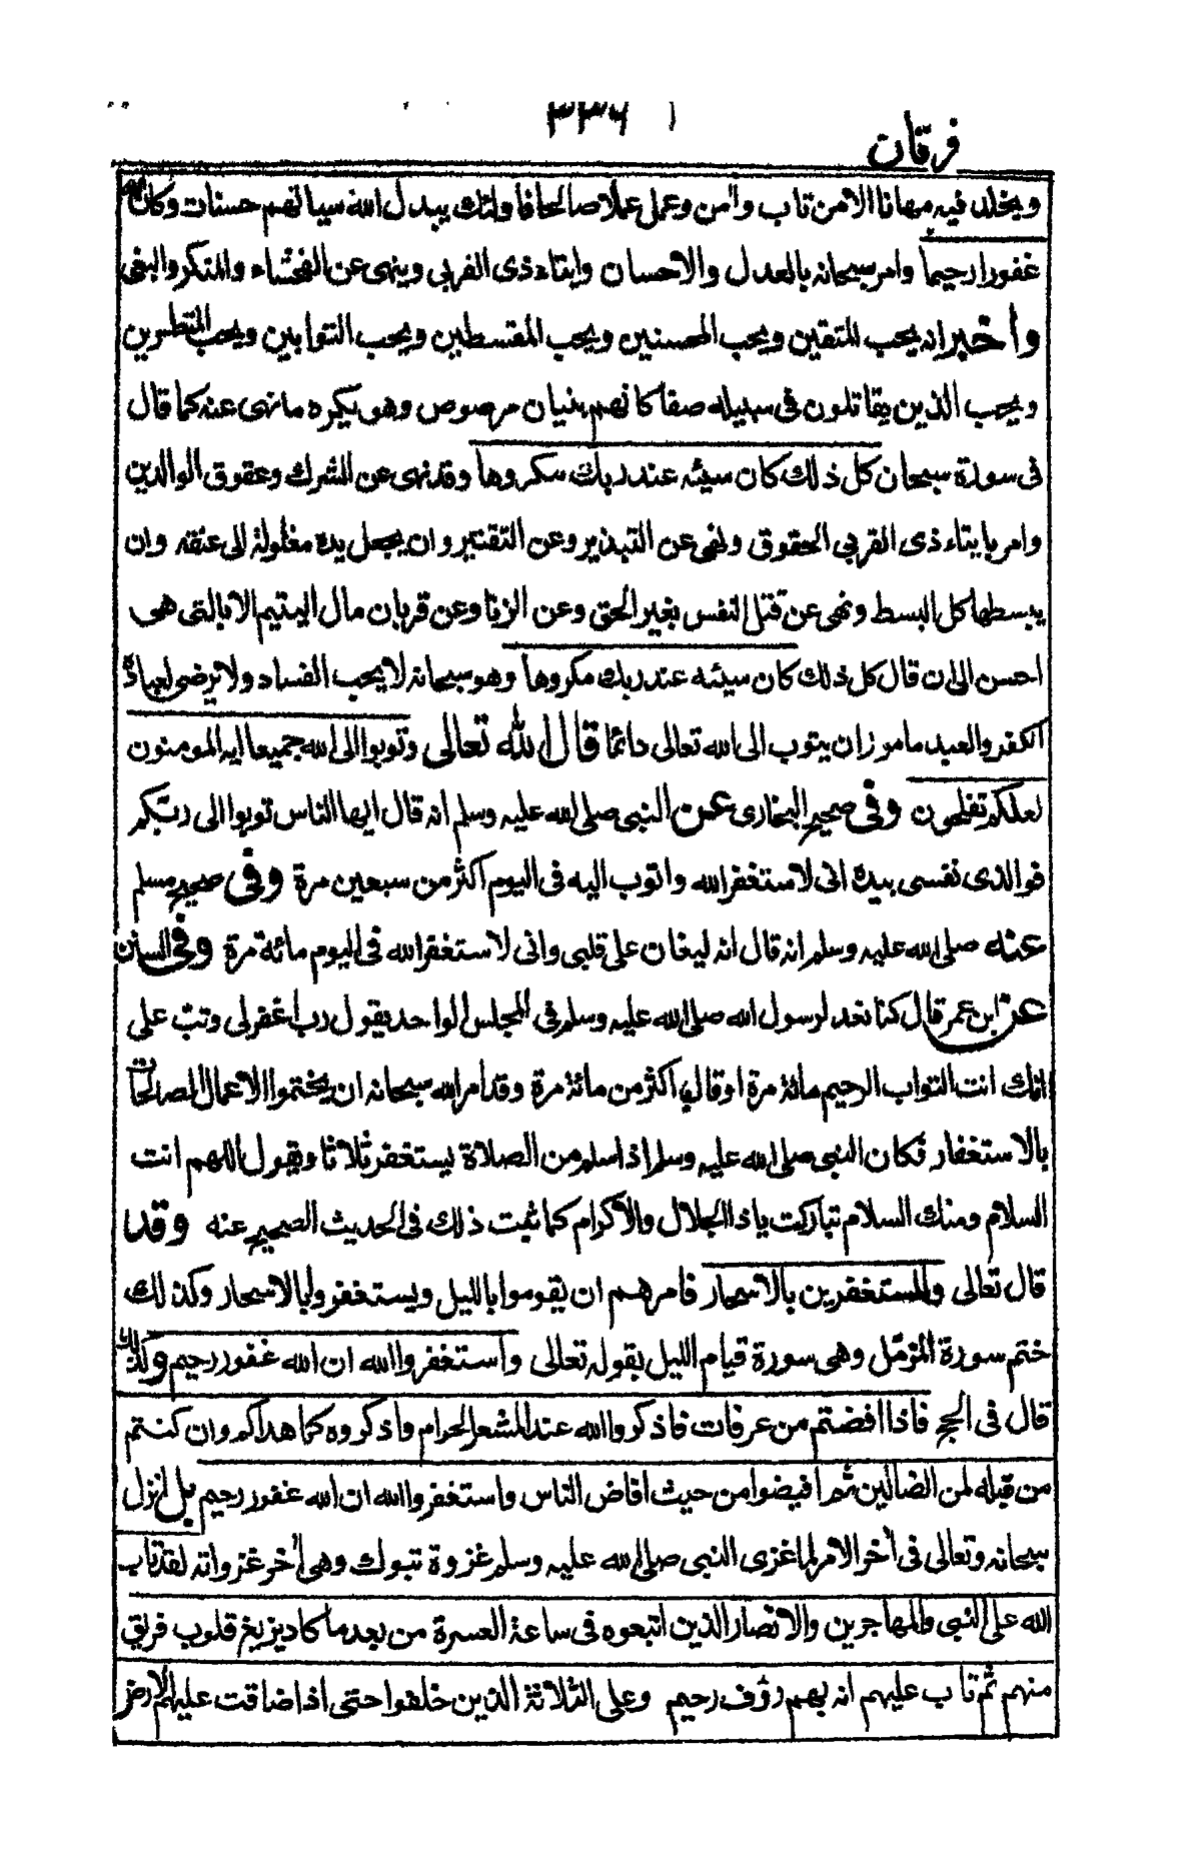 ٣٣٦
فرقان
ويخلد فيه مهانا الا من تاب وأمن وعمل عملا صالحا فاولئك يبدل الله سياتهم حسنات وكان الله
غفورا رحيما وامر سبحانه بالعدل والاحسان وايتاء ذى القربى وينهى عن الفحشاء والمنكر والبغى
وأخبر انه يحب المتقين ويحب المحسنين ويحب المقسطين ويحب التوابين ويحب المتطهرين
ويحب الذين يقاتلون فى سبيله صفا كانهم بنيان مرصوص وهو يكره ما نهى عنه كما قال
فى سورة سبحان كل ذلك كان سيئه عند ربك مكروها وقد نهى عن الشرك وعقوق الوالدين
وامر بايتاء ذى القربى الحقوق ونهى عن التبذير وعن التقتير وان يجعل يده مغلولة الى عنقه وان
يبسطها كل البسط ونهى عن قتل النفس بغير الحق وعن الزنا وعن قربان مال اليتيم الا بالتى هى
احسن الى ان قال كل ذلك كان سيئه عند ربك مكروها وهو سبحانه لا يحب الفساد ولا يرضى لعباده
الكفر والعبد مامور ان يتوب الى الله تعالى دائما قال الله تعالى وتوبوا الى الله جميعا ايه المومنون
لعلكم تفلحون وفى صحيح البخارى عن النبى صلى الله عليه وسلم انه قال ايها الناس توبوا الى ربكم
فوالذى نفسى بيده انى لاستغفر الله واتوب اليه فى اليوم اكثر من سبعين مرة وفى صحيح مسلم
عنه صلى الله عليه وسلم انه قال انه ليغان على قلبى وانى لاستغفر الله فى اليوم مائة مرة وفى السنن
عن ابن عمر قال كنا نعد لرسول الله صلى الله عليه وسلم فى المجلس الواحد يقول رب اغفر لى وتب على
انك انت التواب الرحيم مائة مرة او قال اكثر من مائة مرة وقد امر الله سبحانه ان يختموا الاعمال الصالحات
بالاستغفار فكان النبى صلى الله عليه وسلم اذا سلم من الصلاة يستغفر ثلاثا ويقول اللهم انت
السلام ومنك السلام تباركت يا ذا الجلال والاكرام كما ثبت ذلك فى الحديث الصحيح عنه وقد
قال تعالى والمستغفرين بالاسحار فامرهم ان يقوموا بالليل ويستغفروا بالاسحار وكذلك
ختم سورة المزمل وهى سورة قيام الليل بقوله تعالى واستغفروا الله ان الله غفور رحيم وكذلك
قال فى الحج فاذا افضتم من عرفات فاذكروا الله عند المشعر الحرام واذكروه كما هداكم وان كنتم
من قبله لمن الضالين ثم افيضوا من حيث افاض الناس واستغفروا الله ان الله غفور رحيم بل انزل
سبحانه وتعالى فى أخر الامر لما غزى النبى صلى الله عليه وسلم غزوة تبوك وهى أخر غزواته لقد تاب
الله على النبى والمهاجرين والانصار الذين اتبعوه فى ساعة العسرة من بعد ما كاد يزيغ قلوب فريق
منهم ثم تاب عليهم انه بهم رؤف رحيم وعلى الثلاثة الذين خلفوا حتى اذا ضاقت عليهم الارض